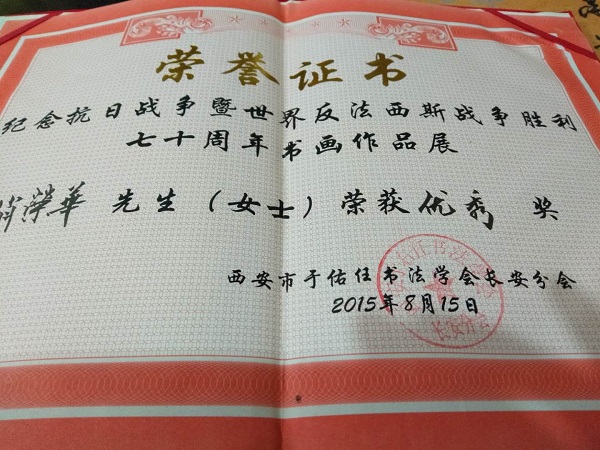 荣誉证书
纪念抗日战争暨世界反法西斯战争胜利
七十周年书画作品展
華 先生（女士）荣获优秀 奖
西安市于佑任书法学会长安分会
2015年8月15日